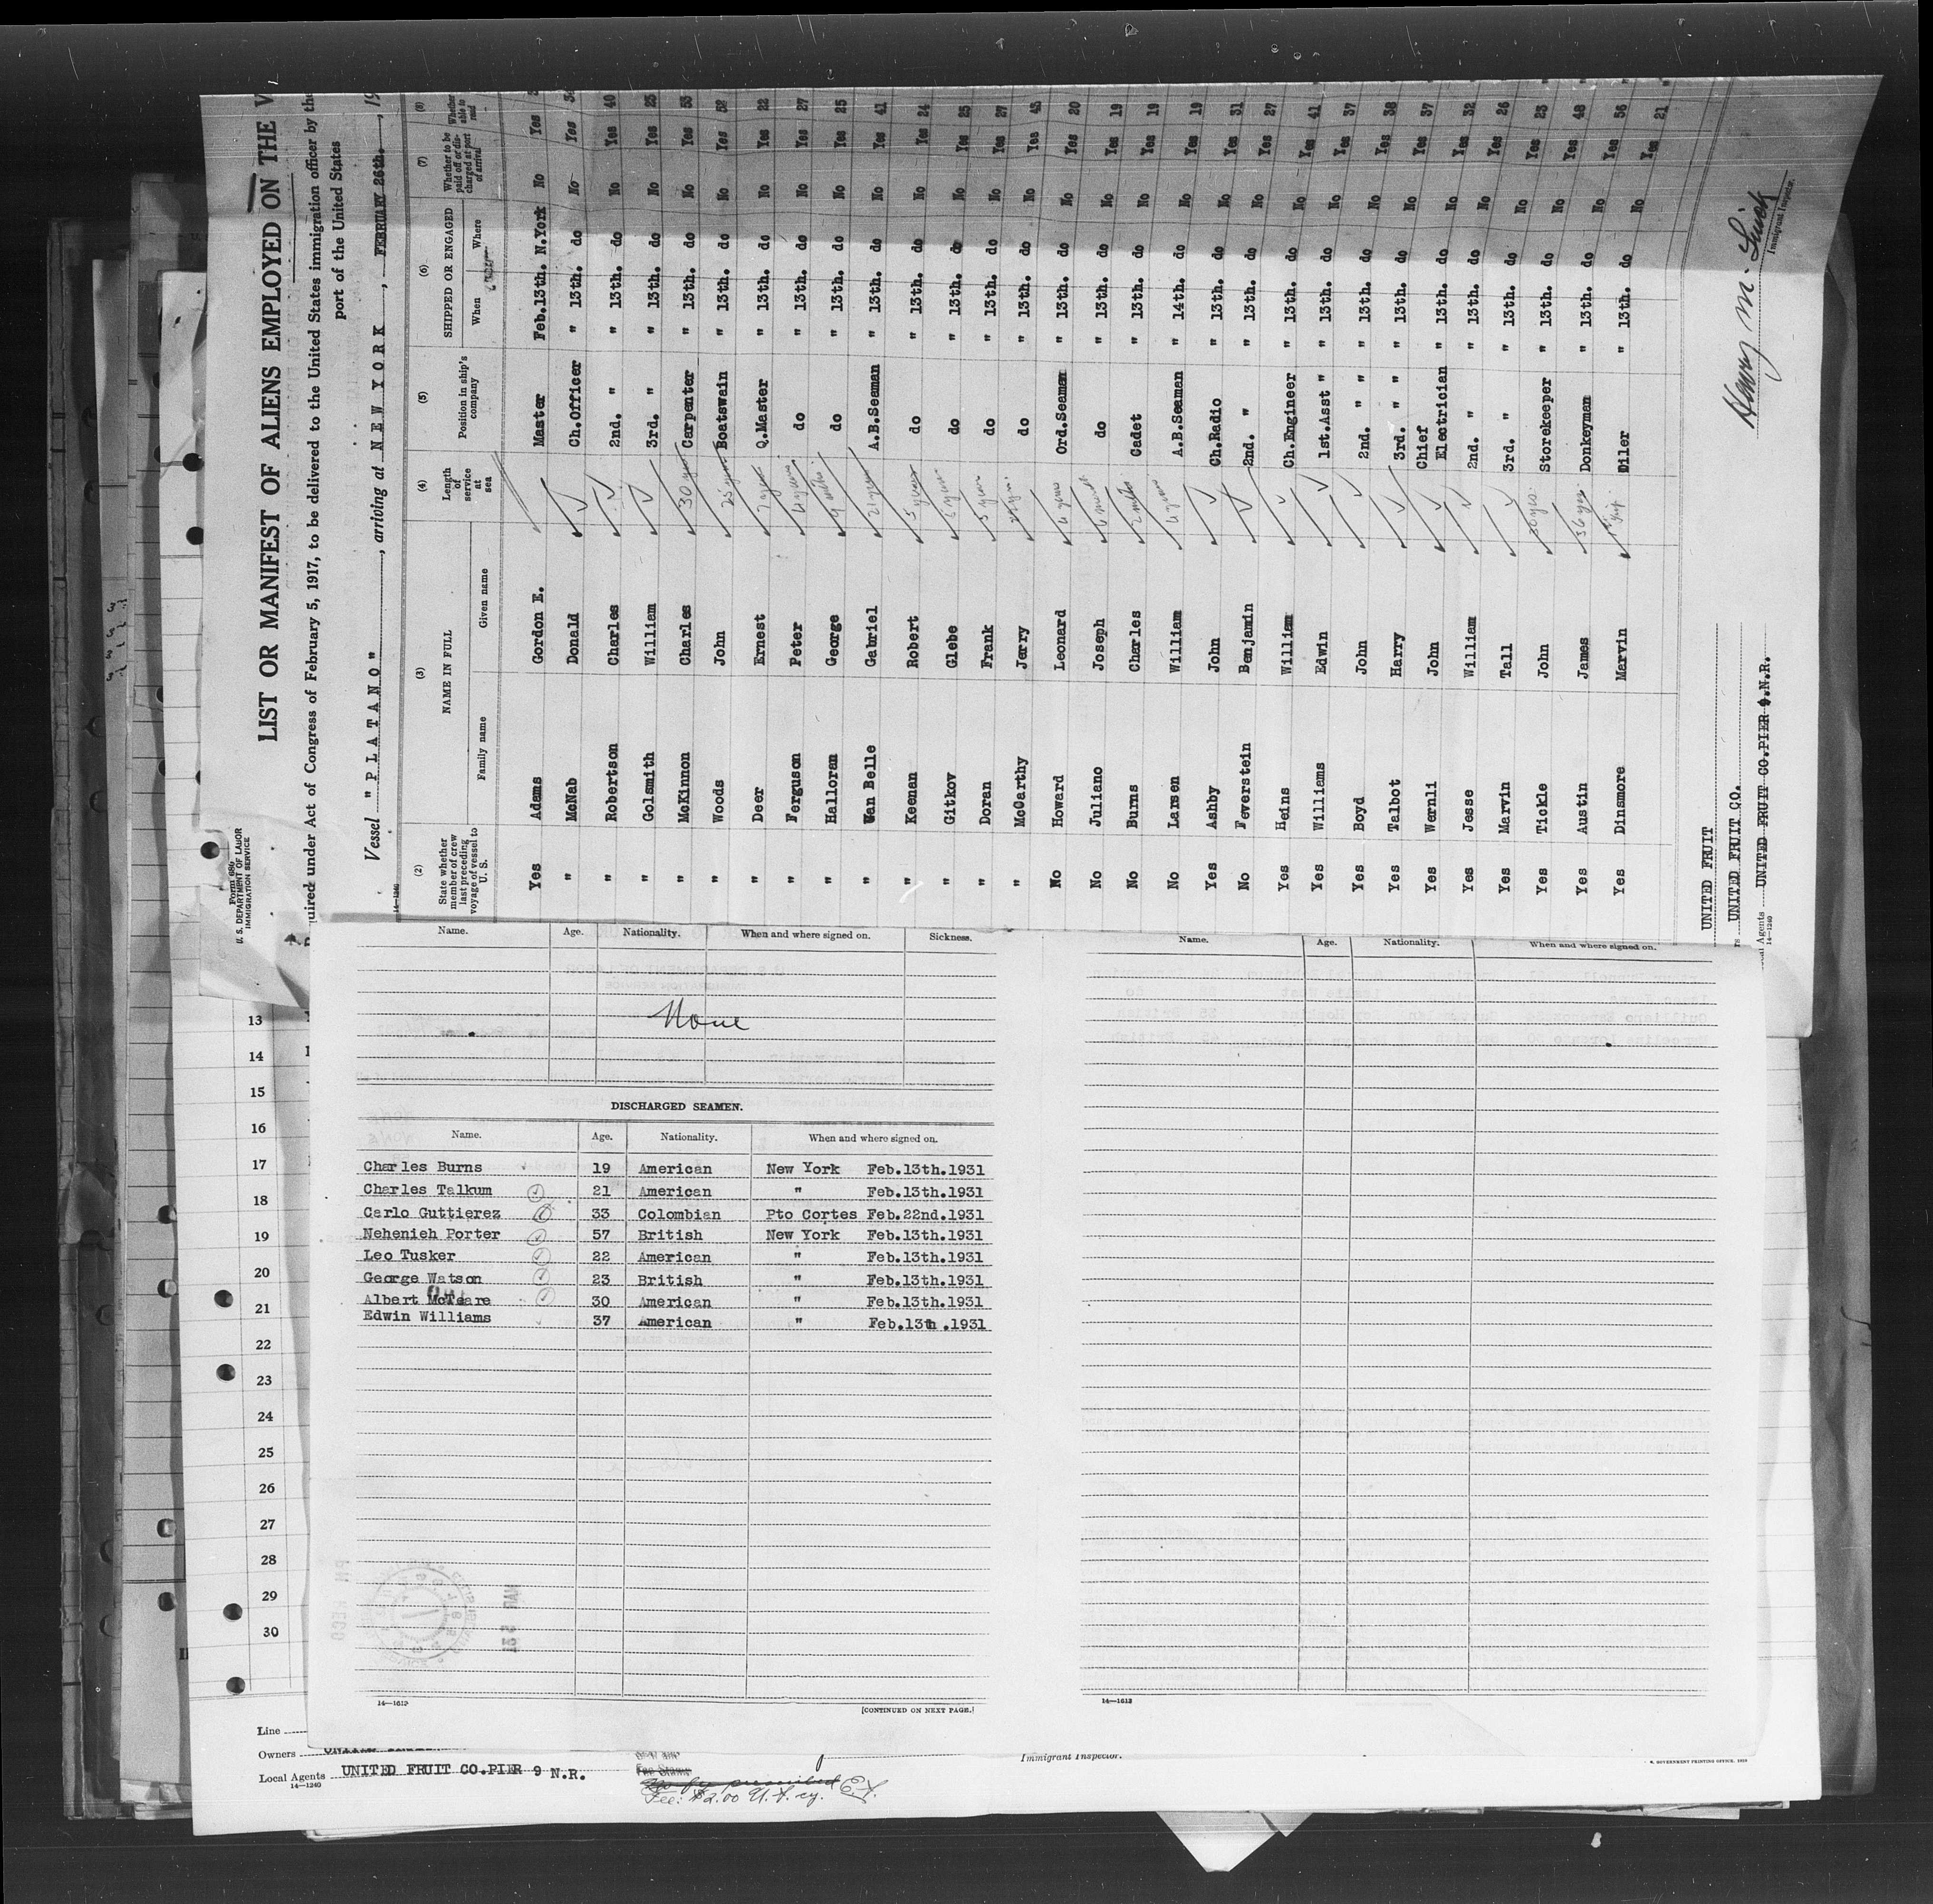 Form 689
U. S. DEPARTMENT OF LABOR
IMMIGRATION SERVICE
LIST OR MANIFEST OF ALIENS EMPLOYED ON THE V
quired under Act of Congress of February 5, 1917, to be delivered to the United States immigration officer by the
port of the United States
Vessel "PLATANO", arriving at NEW YORK, FEBRUARY 26th., 19
14—1240
(2) (3) (4) (5) (6) (7) (8)
State whether member of crew last preceding voyage of vessel to U. S. NAME IN FULL Family name Given name Length of service at sea Position in ship's company SHIPPED OR ENGAGED When Where Whether to be paid off or discharged at port of arrival Whether able to read
Yes Adams Gordon E. Master Feb.13th. N.York No Yes
" McNab Donald Ch.Officer " 13th. do No Yes
" Robertson Charles 2nd. " " 13th. do No Yes 40
" Golsmith William 3rd. " " 13th. do No Yes 25
" McKinnon Charles 30 yrs Carpenter " 13th. do No Yes 53
" Woods John 25 yrs. Boatswain " 13th. do No Yes 52
" Deer Ernest 7 years Q.Master " 13th. do No Yes 22
" Ferguson Peter 4 years do " 13th. do No Yes 27
" Halloran George do " 13th. do No Yes 25
" Van Belle Gabriel 21 years A.B.Seaman " 13th. do No Yes 41
" Keenan Robert 5 years do " 13th. do No Yes 24
" Gitkov Glebe 6 years do " 13th. do No Yes 25
" Doran Frank 5 years do " 13th. do No Yes 27
" McCarthy Jerry do " 13th. do No Yes 45
No Howard Leonard 4 years Ord.Seaman " 13th. do No Yes 20
No Juliano Joseph 6 months do " 13th. do No Yes 19
No Burns Charles Cadet " 13th. do No Yes 19
No Larsen William 4 years A.B.Seaman " 14th. do No Yes 19
Yes Ashby John Ch.Radio " 13th. do No Yes 31
No Feverstein Benjamin 2nd. " " 13th. do No Yes 27
Yes Heins William Ch.Engineer " 13th. do No Yes 41
Yes Williams Edwin 1st.Asst " " 13th. do No Yes 37
Yes Boyd John 2nd. " " 13th. do No Yes 38
Yes Talbot Harry 3rd. " " 13th. do No Yes 37
Yes Wernli John Chief Electrician " 13th. do No Yes 32
Yes Jesse William 2nd. " " 13th. do No Yes 26
Yes Marvin Tall 3rd. " " 13th. do No Yes 23
Yes Tickle John Storekeeper " 13th. do No Yes 48
Yes Austin James 36 yrs. Donkeyman " 13th. do No Yes 56
Yes Dinsmore Marvin Oiler " 13th. do No Yes 21
UNITED FRUIT
UNITED FRUIT CO.
UNITED FRUIT CO.PIER 9.N.R.
14—1240
Immigrant Inspector.
Name. Age. Nationality. When and where signed on. Sickness.
None
DISCHARGED SEAMEN.
Name. Age. Nationality. When and where signed on.
Charles Burns 19 American New York Feb.13th.1931
Charles Talkum 21 American " Feb.13th.1931
Carlo Guttierez 33 Colombian Pto Cortes Feb.22nd.1931
Nehenieh Porter 57 British New York Feb.13th.1931
Leo Tusker 22 American " Feb.13th.1931
George Watson 23 British " Feb.13th.1931
Albert McTeare 30 American " Feb.13th.1931
Edwin Williams 37 American " Feb.13th.1931
14—1612
[CONTINUED ON NEXT PAGE.]
Name. Age. Nationality. When and where signed on.
14—1612
13
14
15
16
17
18
19
20
21
22
23
24
25
26
27
28
29
30
Line
Owners
Local Agents UNITED FRUIT CO.PIER 9 N.R.
14—1240
Fee: $2.00
Immigrant Inspector.
GOVERNMENT PRINTING OFFICE